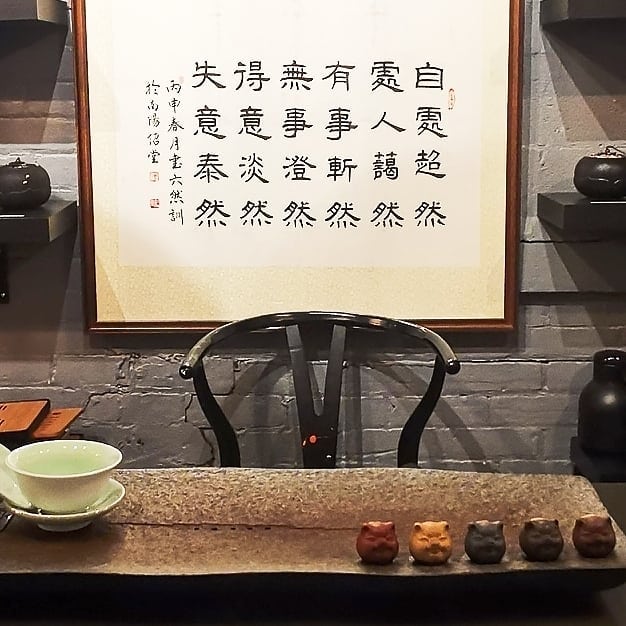 自處超然
處人藹然
有事斬然
無事澄然
得意淡然
失意泰然
丙申春月書六然訓
於尚陽佋堂